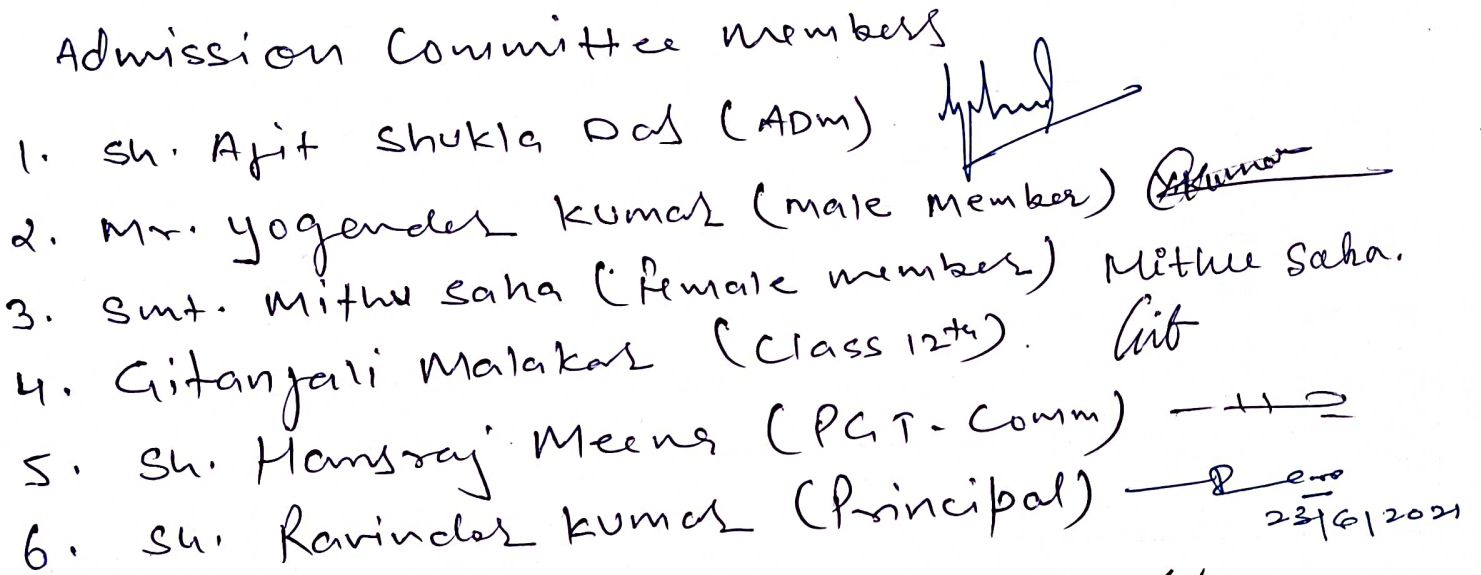 Admission Committee members
1. Sh. Ajit Shukla Das (ADM)
2. Mr. Yogender Kumar (male member) Kumar
3. Smt. Mithu Saha (female member) Mithu Saha.
4. Gitanjali Malakar (Class 12th). Git
5. Sh. Hansraj Meena (PGT-Comm)
6. Sh. Ravinder Kumar (Principal)
23/6/2021